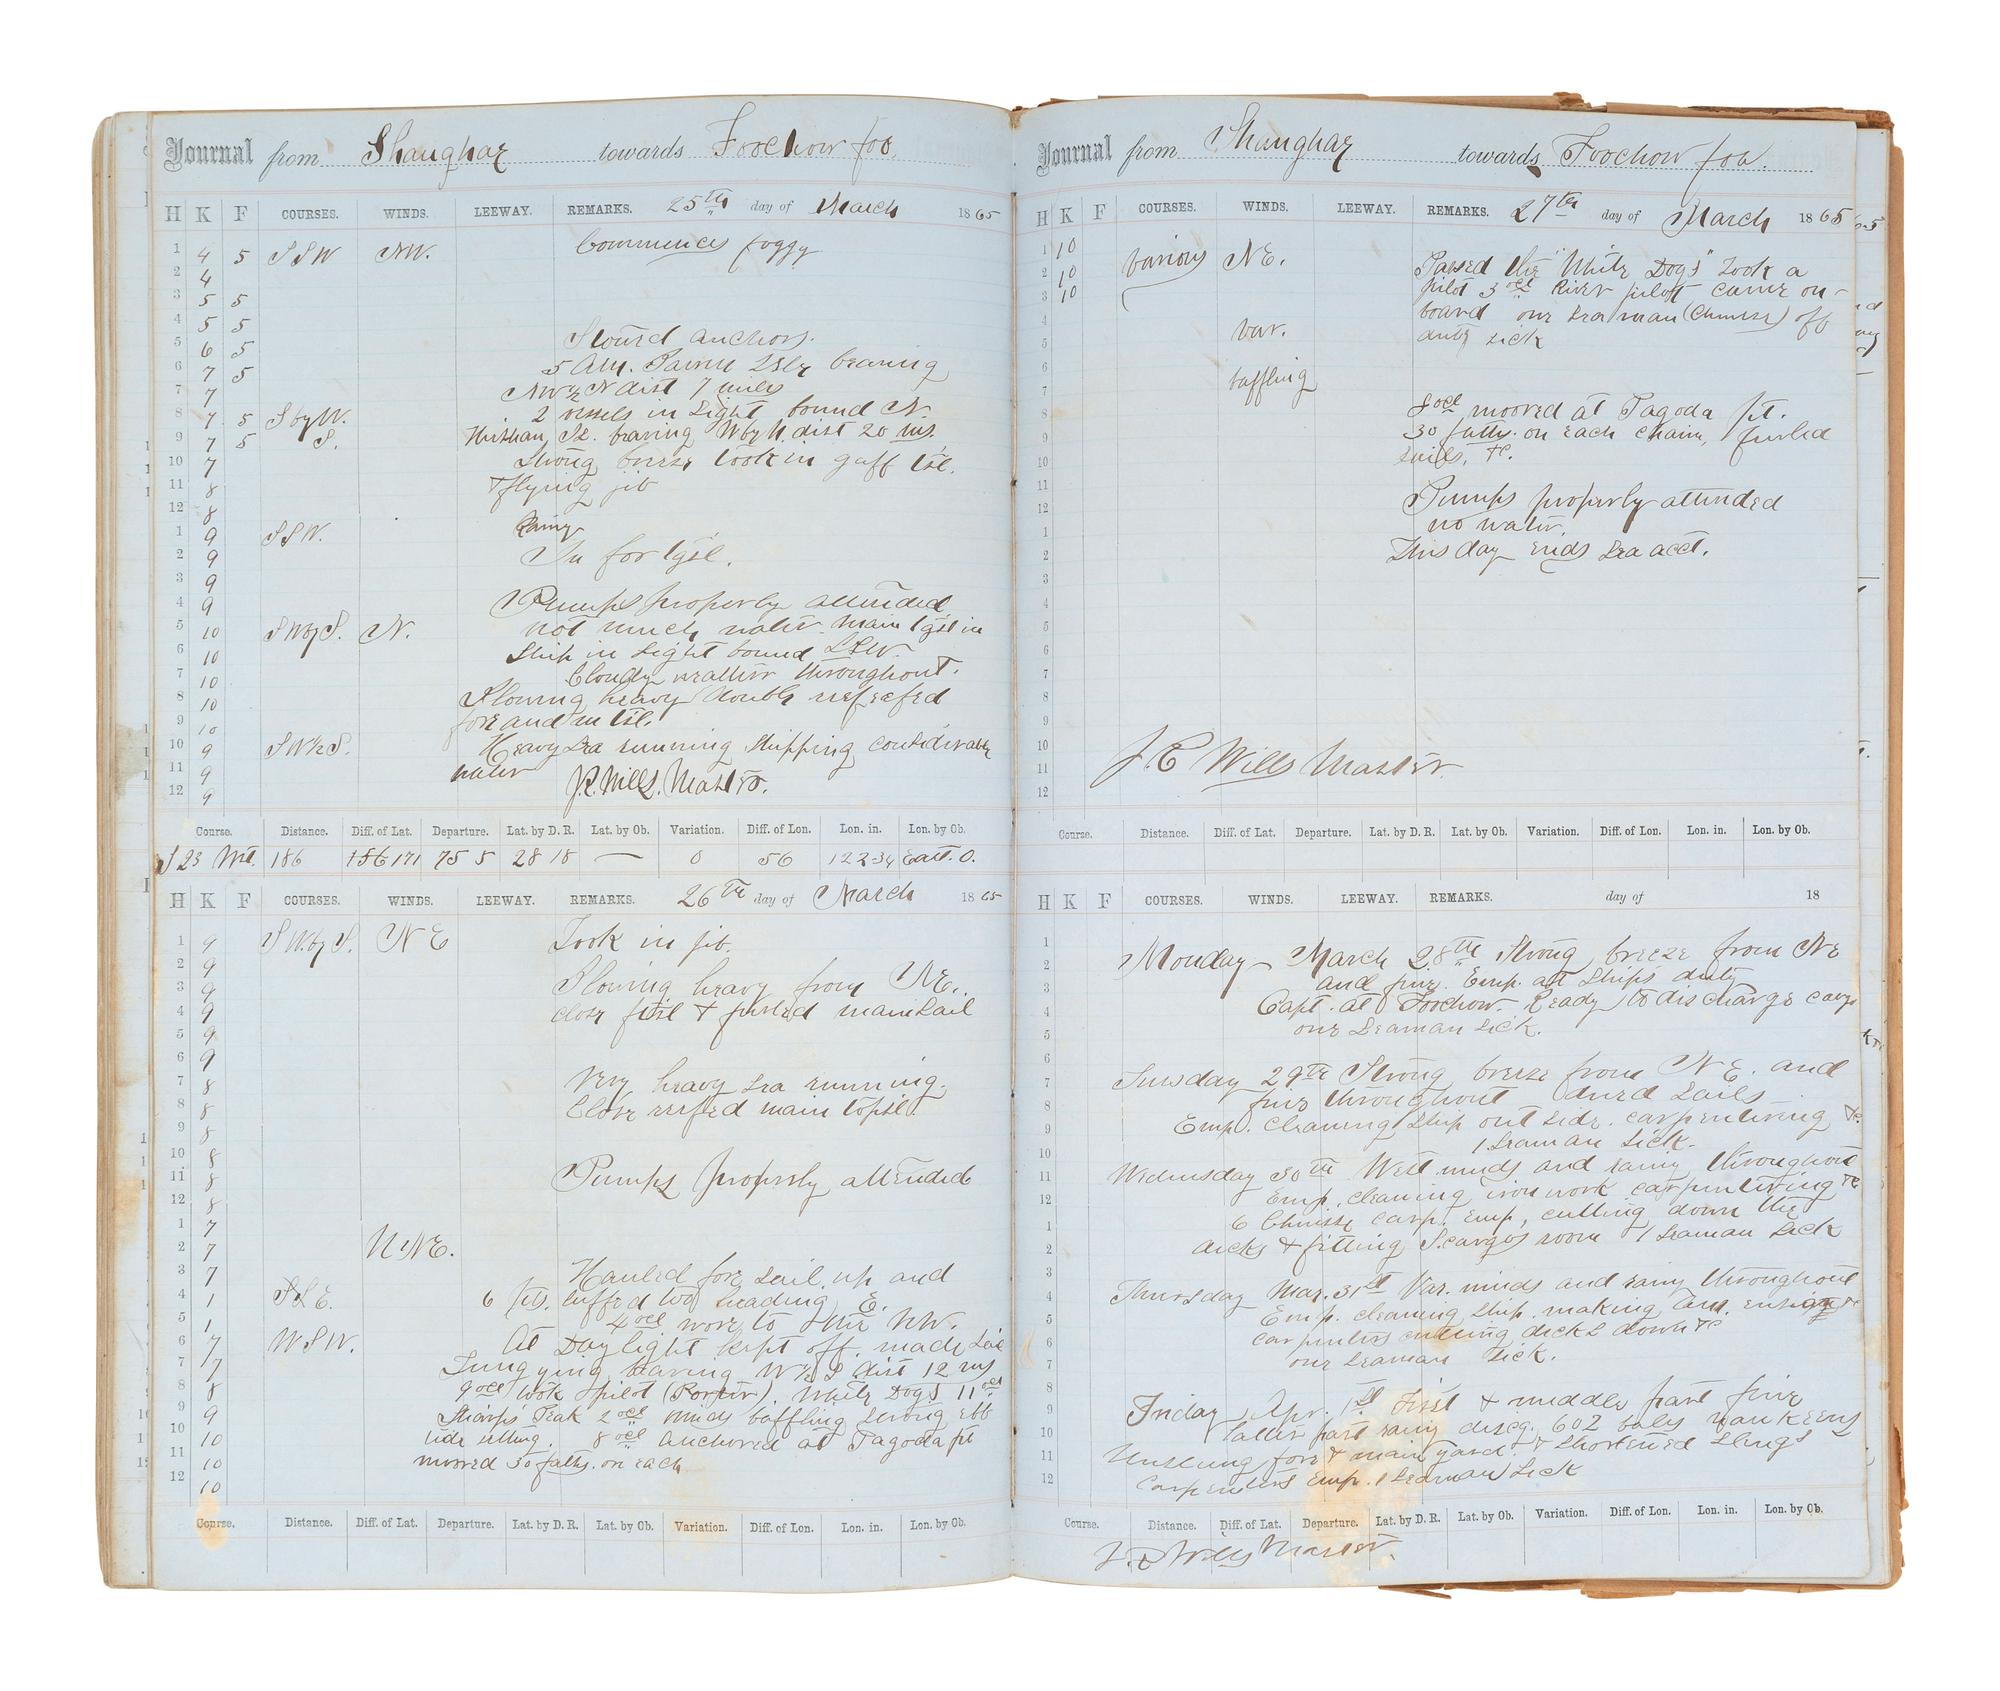 Journal from Shanghae towards Foochow foo.
H K F COURSES. WINDS. LEEWAY. REMARKS. 25th day of March 1865
1 4 5 SSW NW. Commences foggy
2 4
3 5 5
4 5 5 Stowed anchors.
5 6 5 5 AM. bearing
6 7 5 NW½N dist 7 miles
7 7 2 vessels in sight bound N.
8 7 5 S by W. Isl. bearing W by N. dist 20 ms.
9 7 5 S. Strong breeze took in gaff tsl.
10 7 & flying jib
11 8
12 8 Rainy
1 9 SSW. In for tgsl.
2 9
3 9
4 9 Pumps properly attended
5 10 SW by S. N. not much water. Main tgsl in
6 10 Ship in sight bound SSW.
7 10 Cloudy weather throughout.
8 10 Blowing heavy double reefed
9 10 fore and m tsl.
10 9 SW½S. Heavy sea running shipping considerable
11 9 water
12 9 J.P. Wills. Master.
Course. Distance. Diff. of Lat. Departure. Lat. by D. R. Lat. by Ob. Variation. Diff. of Lon. Lon. in. Lon. by Ob.
S 23 Wt. 186 171 75 5 28 18 — 0 56 122-34 East. 0.
H K F COURSES. WINDS. LEEWAY. REMARKS. 26th day of March 1865
1 9 SW. by S. NE Took in jib.
2 9
3 9 Blowing heavy from NE.
4 9 close & furled mainsail
5 9
6 9
7 8 Very heavy sea running.
8 8 Close reefed main topsl.
9 8
10 8
11 8 Pumps properly attended
12 8
1 7
2 7 NNE.
3 7 Hauled fore sail up and
4 1 SSE. 6 pts. luffed too heading E.
5 1 4 ocl wore to the NW.
6 7 WSW. At Daylight kept off. made sail
7 7 Tung ying bearing W½S dist 12 ms
8 8 9 ocl took pilot (Porter). White Dogs 11 ocl
9 9 Sharps Peak 2 ocl winds baffling strong ebb
10 10 tide setting. 8 ocl anchored at Pagoda pt
11 10 moored 30 faths. on each
12 10
Course. Distance. Diff. of Lat. Departure. Lat. by D. R. Lat. by Ob. Variation. Diff. of Lon. Lon. in. Lon. by Ob.
Journal from Shanghae towards Foochow foo.
H K F COURSES. WINDS. LEEWAY. REMARKS. 27th day of March 1865
1 10 various NE. Passed the "White Dogs" Took a
2 10 pilot 3 ocl River pilot came on-
3 10 board one seaman (Chinese) off
4 var. duty sick
5
6
7 baffling
8 8 ocl moored at Pagoda pt.
9 30 faths. on each chain, furled
10 sails, &c.
11
12 Pumps properly attended
1 no water.
2 This day ends sea acct.
3
4
5
6
7
8
9
10 J.P. Wills Master
11
12
Course. Distance. Diff. of Lat. Departure. Lat. by D. R. Lat. by Ob. Variation. Diff. of Lon. Lon. in. Lon. by Ob.
H K F COURSES. WINDS. LEEWAY. REMARKS. day of 18
1 Monday March 28th Strong breeze from NE
2 and fine. Emp. at Ships duty
3 Capt. at Foochow. Ready to discharge cargo
4 one Seaman Sick.
5
6 Tuesday 29th Strong breeze from N.E. and
7 fine throughout dried Sails
8 Emp. cleaning Ship outside. carpentering &c.
9 1 Seaman Sick.
10 Wednesday 30th West winds and rainy throughout
11 Emp. cleaning iron work carpentering &c
12 6 Chinese carp. Emp, cutting down the
1 decks & fitting S.cargos room 1 Seaman Sick
2
3 Thursday Mar. 31st Var. winds and rainy throughout
4 Emp. cleaning Ship. making Am. ensign &c
5 carpenters cutting decks down &c
6 one Seaman Sick.
7
8 Friday Apr. 1st First & middle part fine
9 latter part rainy discg. 602 bales Nankeens
10 Unslung fore & main yard. & Shortened Slings
11 Carpenters Emp. 1 Seaman Sick
12
Course. Distance. Diff. of Lat. Departure. Lat. by D. R. Lat. by Ob. Variation. Diff. of Lon. Lon. in. Lon. by Ob.
J.P. Wills Master.